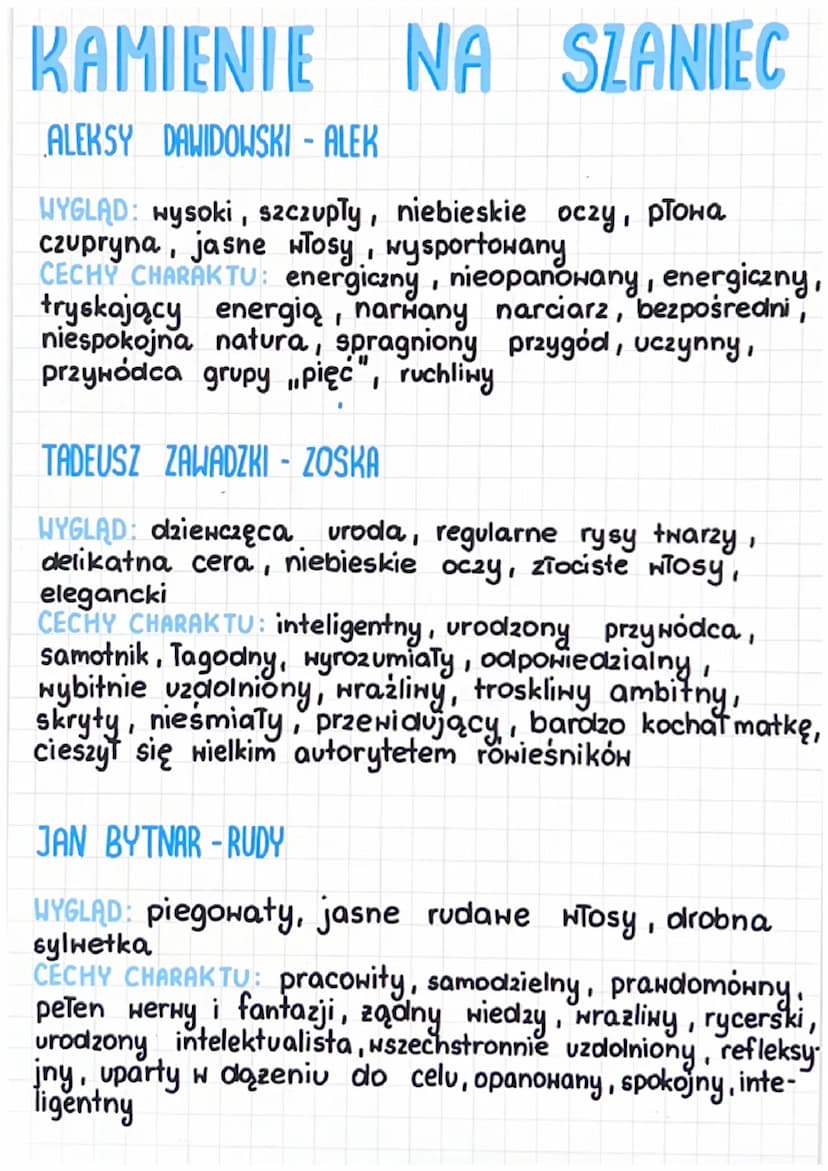 KAMIENIE NA SZANIEC
ALEKSY DAWIDOWSKI - ALEK
WYGLĄD: wysoki, szczupły, niebieskie oczy, płowa
czupryna, jasne włosy, wysportowany
CECHY CHARAKTU: energiczny, nieopanowany, energiczny,
tryskający energią, narwany narciarz, bezpośredni,
niespokojna natura, spragniony przygód, uczynny,
przywódca grupy „pięć", ruchliwy
TADEUSZ ZAWADZKI - ZOSKA
WYGLĄD: dziewczęca uroda, regularne rysy twarzy,
delikatna cera, niebieskie oczy, złociste włosy,
elegancki
CECHY CHARAKTU: inteligentny, urodzony przywódca,
samotnik, łagodny, wyrozumiały, odpowiedzialny,
wybitnie uzdolniony, wrażliwy, troskliwy ambitny,
skryty, nieśmiały, przewidujący, bardzo kochał matkę,
cieszył się wielkim autorytetem rówieśników
JAN BYTNAR - RUDY
WYGLĄD: piegowaty, jasne rudawe włosy, drobna
sylwetka
CECHY CHARAKTU: pracowity, samodzielny, prawdomówny,
pełen werwy i fantazji, żądny wiedzy, wrażliwy, rycerski,
urodzony intelektualista, wszechstronnie uzdolniony, refleksy-
jny, uparty w dążeniu do celu, opanowany, spokojny, inte-
ligentny